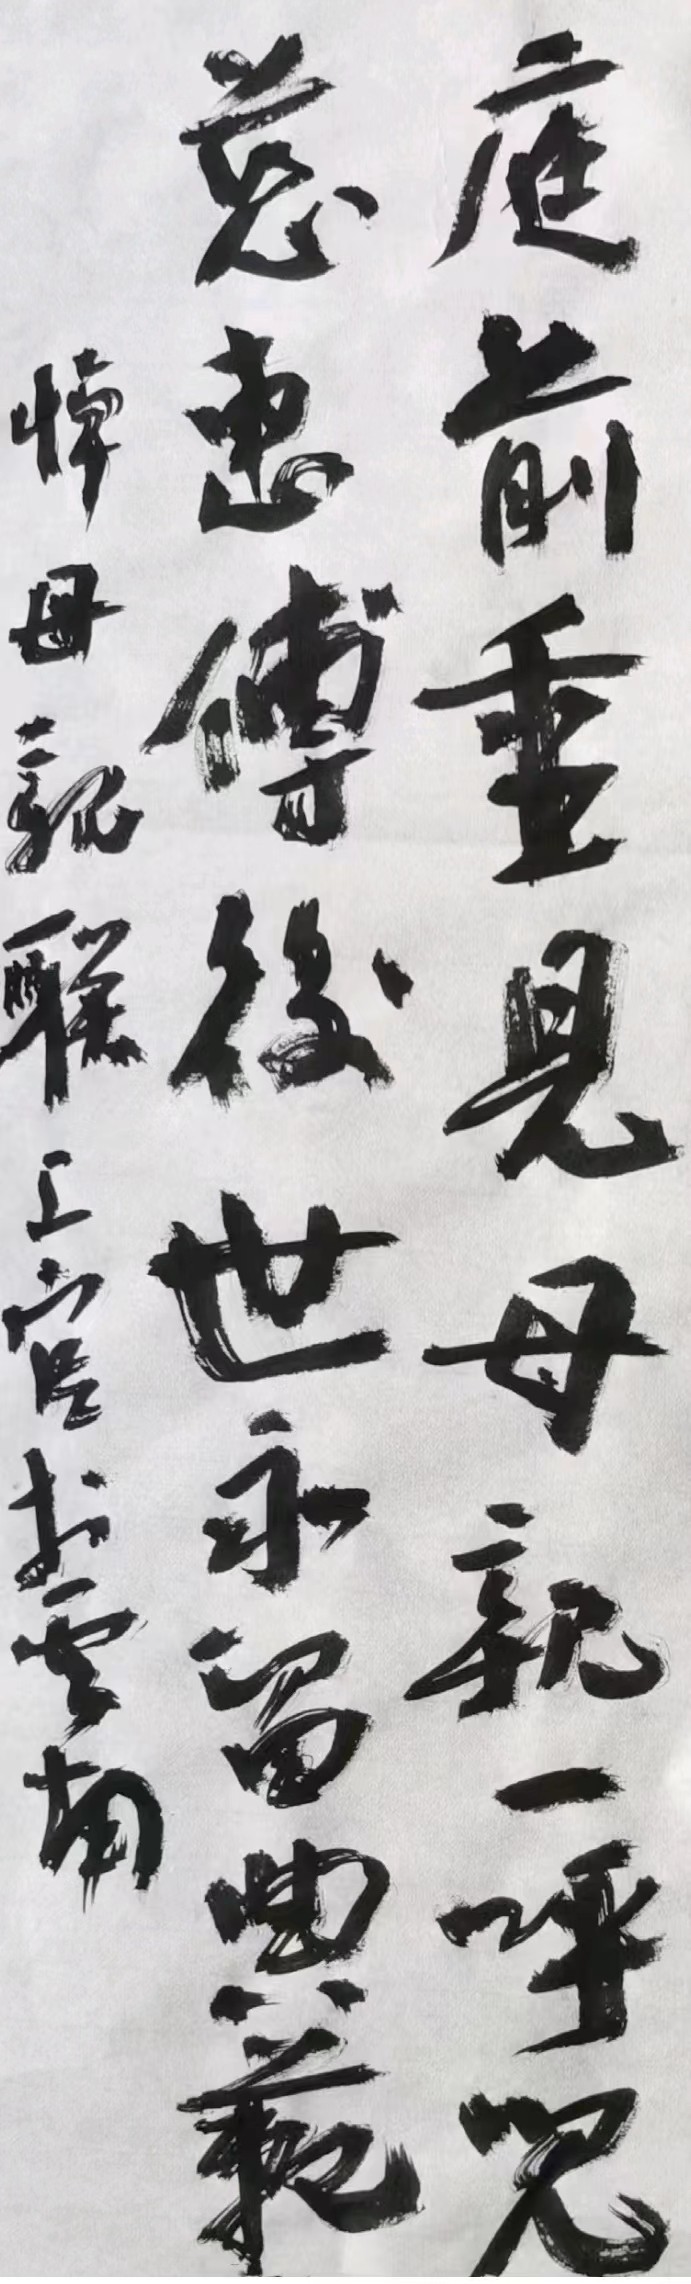 庭前重見母親一呼兒
慈惠傳後世永留典範
悼母親聯 官於雲南